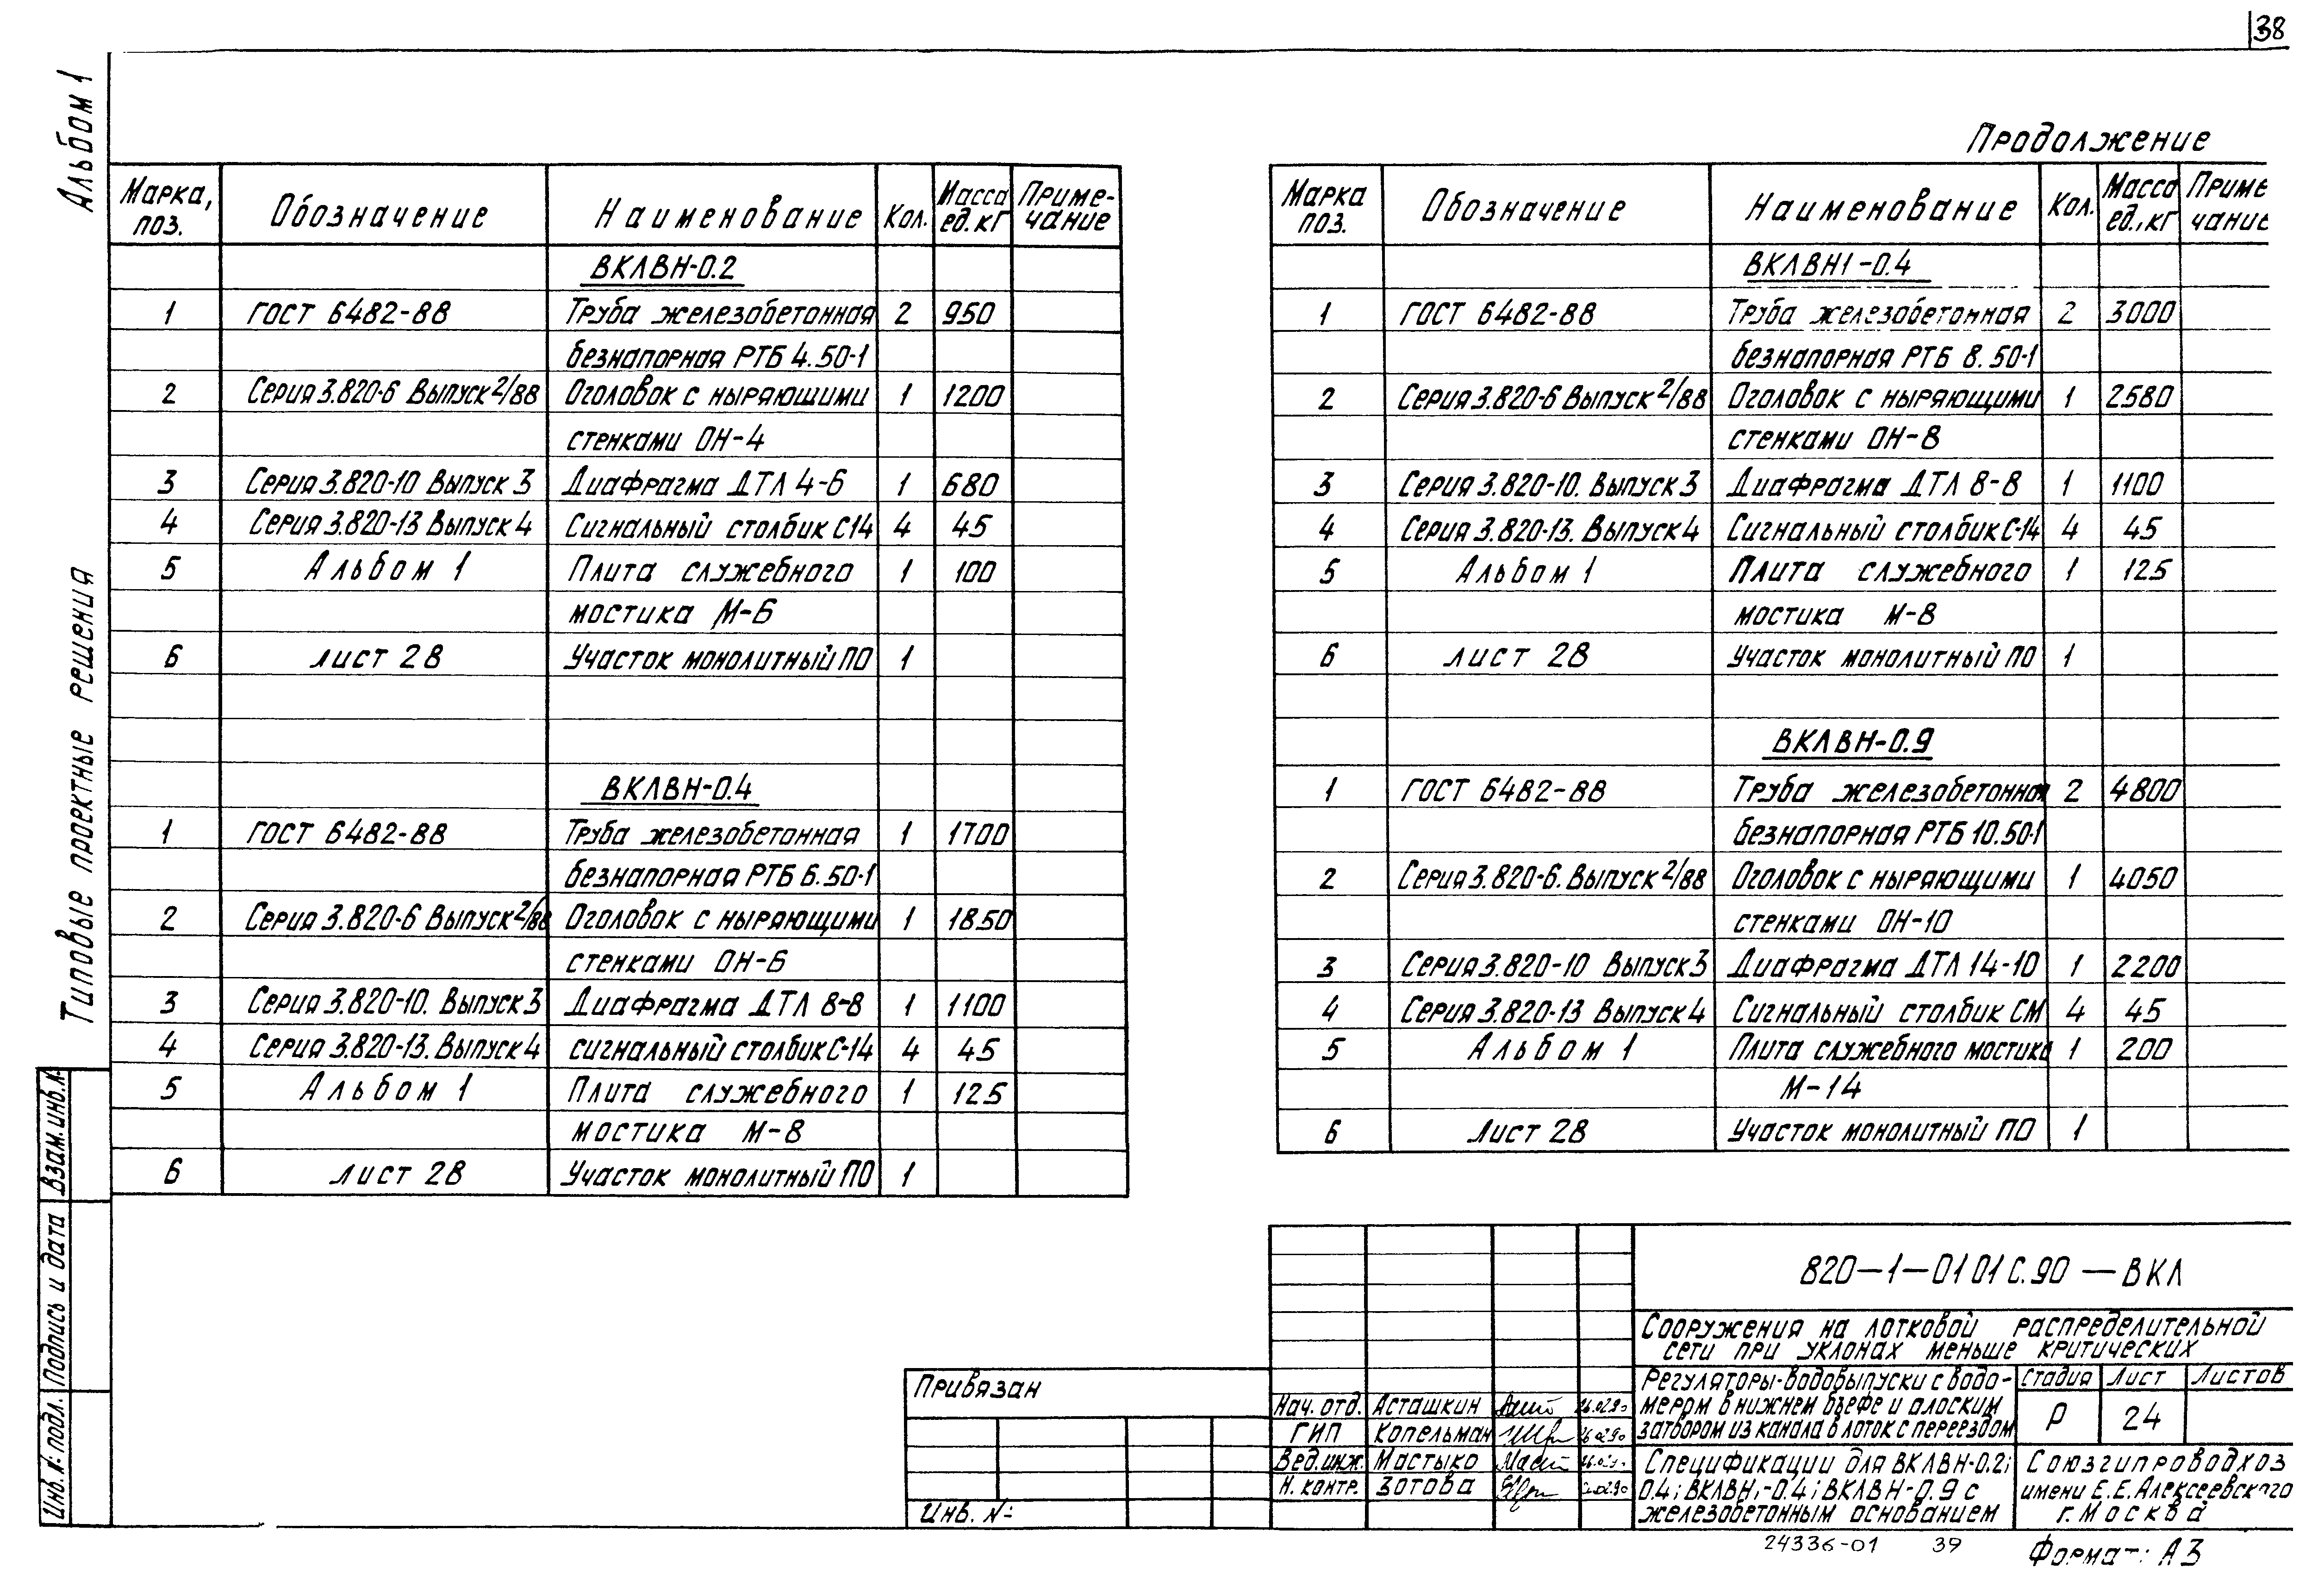 38
Альбом 1
Типовые проектные решения
Продолжение
Марка, поз. Обозначение Наименование Кол. Масса ед. кг Приме-чание
ВКЛВН-0.2
1 ГОСТ 6482-88 Труба железобетонная 2 950
безнапорная РТБ 4.50-1
2 Серия 3.820-6 Выпуск 2/88 Оголовок с ныряющими 1 1200
стенками ОН-4
3 Серия 3.820-10 Выпуск 3 Диафрагма ДТЛ 4-6 1 680
4 Серия 3.820-13 Выпуск 4 Сигнальный столбик С14 4 45
5 Альбом 1 Плита служебного 1 100
мостика М-6
6 лист 28 Участок монолитный ПО 1
ВКЛВН-0.4
1 ГОСТ 6482-88 Труба железобетонная 1 1700
безнапорная РТБ 6.50-1
2 Серия 3.820-6 Выпуск 2/88 Оголовок с ныряющими 1 1850
стенками ОН-6
3 Серия 3.820-10. Выпуск 3 Диафрагма ДТЛ 8-8 1 1100
4 Серия 3.820-13. Выпуск 4 сигнальный столбик С-14 4 45
5 Альбом 1 Плита служебного 1 125
мостика М-8
6 лист 28 Участок монолитный ПО 1
Марка поз. Обозначение Наименование Кол. Масса ед., кг Приме чание
ВКЛВН1-0.4
1 ГОСТ 6482-88 Труба железобетонная 2 3000
безнапорная РТБ 8.50-1
2 Серия 3.820-6 Выпуск 2/88 Оголовок с ныряющими 1 2580
стенками ОН-8
3 Серия 3.820-10. Выпуск 3 Диафрагма ДТЛ 8-8 1 1100
4 Серия 3.820-13. Выпуск 4 Сигнальный столбик С-14 4 45
5 Альбом 1 Плита служебного 1 125
мостика М-8
6 лист 28 Участок монолитный ПО 1
ВКЛВН-0.9
1 ГОСТ 6482-88 Труба железобетонная 2 4800
безнапорная РТБ 10.50-1
2 Серия 3.820-6. Выпуск 2/88 Оголовок с ныряющими 1 4050
стенками ОН-10
3 Серия 3.820-10 Выпуск 3 Диафрагма ДТЛ 14-10 1 2200
4 Серия 3.820-13 Выпуск 4 Сигнальный столбик СМ 4 45
5 Альбом 1 Плита служебного мостика 1 200
М-14
6 Лист 28 Участок монолитный ПО 1
Инв. № подл. Подпись и дата Взам. инв. №
Привязан
Инв. №
820-1-0101с.90-ВКЛ
Сооружения на лотковой распределительной
сети при уклонах меньше критических
Нач. отд. Асташкин 26.02.90
ГИП Копельман 26.02.90
Вед. инж. Мастыко
Н. контр. Зотова
Регуляторы-водовыпуски с водо-
мером в нижнем бьефе и плоским
затвором из канала в лоток с переездом
Стадия Лист Листов
Р 24
Спецификации для ВКЛВН-0.2;
0.4; ВКЛВН1-0.4; ВКЛВН-0.9 с
железобетонным основанием
Союзгипроводхоз
имени Е.Е.Алексеевского
г. Москва
24336-01 39
Формат: А3